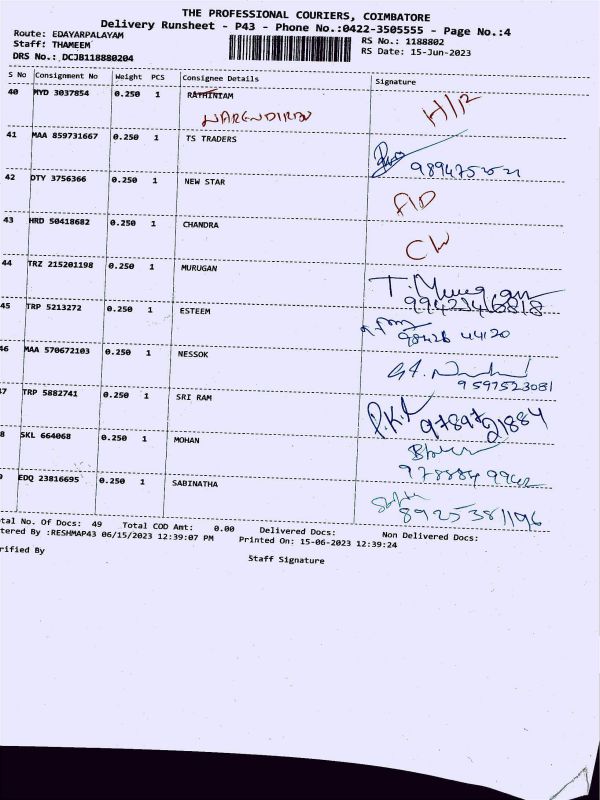 THE PROFESSIONAL COURIERS, COIMBATORE
Delivery Runsheet - P43 - Phone No.:0422-3505555 - Page No.:4
Route: EDAYARPALAYAM
Staff: THAMEEM
RS No.: 1188802
DRS No.: DCJB118880204
RS Date: 15-Jun-2023
S No Consignment No Weight PCS Consignee Details Signature
40 MYD 3037854 0.250 1 RATHINIAM H/R
NARENDIRAN
41 MAA 859731667 0.250 1 TS TRADERS
42 DTY 3756366 0.250 1 NEW STAR A/D
43 HRD 50418682 0.250 1 CHANDRA
44 TRZ 215201198 0.250 1 MURUGAN T. Murugan
45 TRP 5213272 0.250 1 ESTEEM
98428 44120
46 MAA 570672103 0.250 1 NESSOK
9597523081
7 TRP 5882741 0.250 1 SRI RAM
9789721884
8 SKL 664068 0.250 1 MOHAN
EDQ 23816695 0.250 1 SABINATHA
8925381196
tal No. Of Docs: 49 Total COD Amt: 0.00 Delivered Docs: Non Delivered Docs:
tered By :RESHMAP43 06/15/2023 12:39:07 PM Printed On: 15-06-2023 12:39:24
rified By
Staff Signature